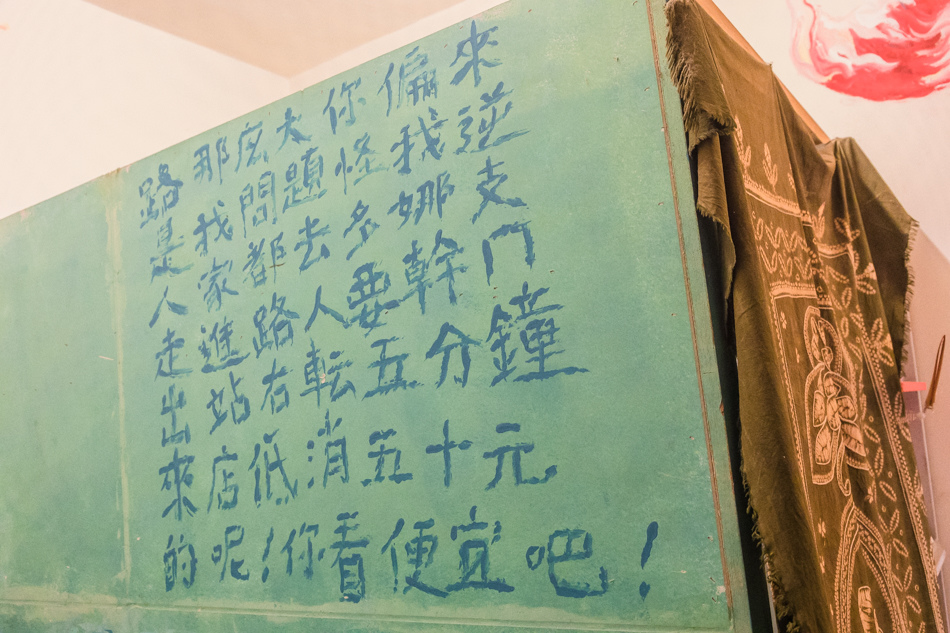 路那庅大你偏來
是找問題怪我逆
人家都去多娜支
走進路人要幹门
出站右転五分鐘
來店低消五十元
的呢!你看便宜吧!